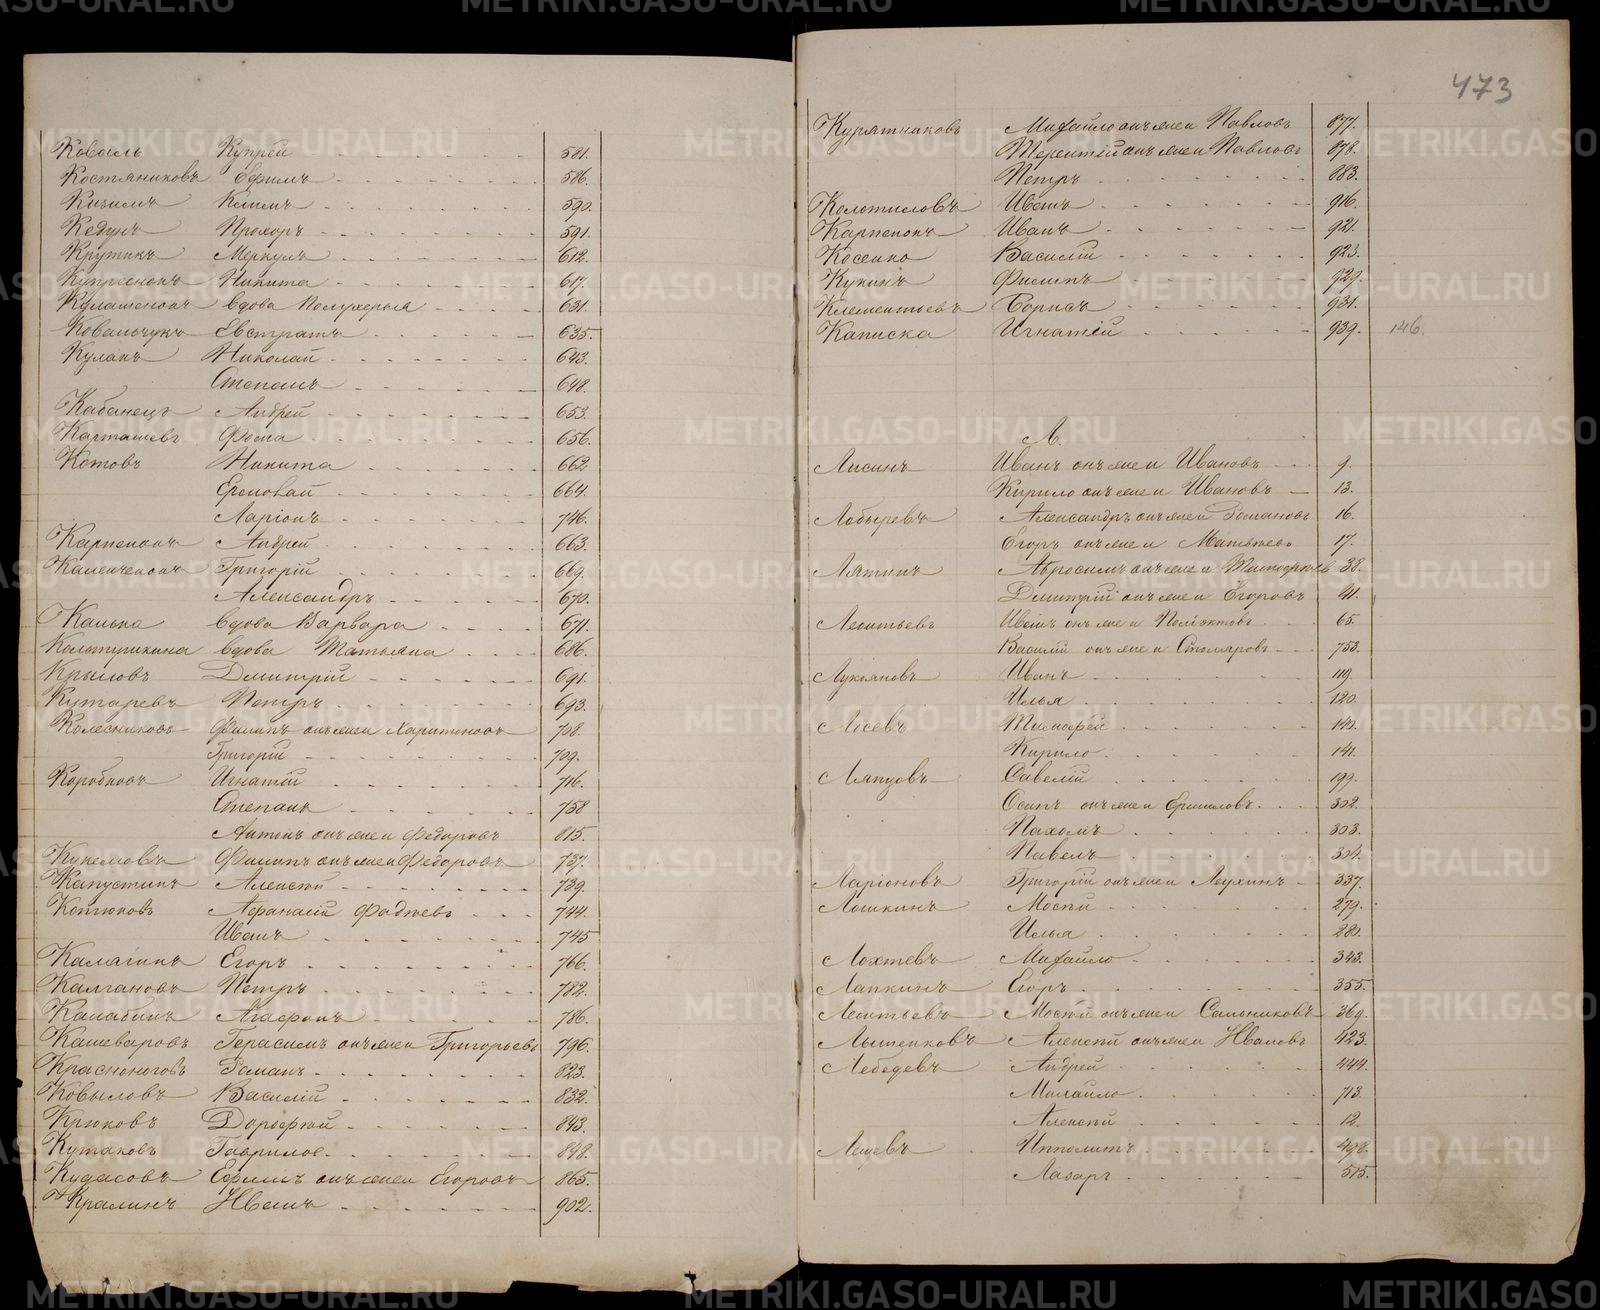 Коваль Купрей 581.
Костяниковъ Ефимъ 586.
Кизимъ Климъ 590.
Кедунъ Прохоръ 591.
Крутикъ Меркулъ 612.
Купріенокъ Никита 617.
Кулашенокъ вдова Полухерья 631.
Ковальчукъ Евстратъ 635.
Кулакъ Николай 643.
Степанъ 648.
Кабанецъ Андрей 653.
Карташевъ Фома 656.
Котовъ Никита 662.
Ермолай 664.
Ларіонъ 746.
Карпенокъ Андрей 663.
Каленченокъ Григорій 669.
Александръ 670.
Канька вдова Варвара 671.
Колотушкина вдова Татьяна 686.
Крыловъ Дмитрій 691.
Кутаревъ Петръ 693.
Колесниковъ Филипъ онъ же и Харитоновъ 708.
Григорій 709.
Коробковъ Игнатій 716.
Степанъ 758
Антонъ онъ же и Федоровъ 815.
Кукемовъ Филипъ онъ же и Федоровъ 737.
Капустинъ Алексей 739.
Коптюковъ Афанасій Фадѣевъ 744.
Иванъ 745
Калягинъ Егоръ 766.
Калгановъ Петръ 782.
Калабинъ Агафонъ 786.
Кашеваровъ Герасимъ онъ же и Григорьевъ 796.
Красноноговъ Романъ 823.
Ковыловъ Василій 832.
Крюковъ Дорофей 843.
Кутаковъ Гаврило 848.
Кудасовъ Ефимъ онъ же и Егоровъ 865.
Кралинъ Иванъ 902.
473
Курятниковъ Михайло онъ же и Павловъ 877.
Терентій онъ же и Павловъ 878.
Петръ 883.
Колотиловъ Иванъ 916.
Карпенокъ Иванъ 921.
Косенко Василій 923.
Кукинъ Филипъ 929.
Клементьевъ Борисъ 931.
Каписка Игнатій 939. 146.
Л.
Лисинъ Иванъ онъ же и Ивановъ 9.
Кирило онъ же и Ивановъ 13.
Лобыревъ Александръ онъ же и Романовъ 16.
Егоръ онъ же и Матвѣевъ 17.
Лятинъ Абросимъ онъ же и Тимофѣев 38.
Дмитрій онъ же и Егоровъ 41.
Леонтьевъ Иванъ онъ же и Поліэктовъ 65.
Василій онъ же и Столяровъ 753.
Лукояновъ Иванъ 119.
Илья 120.
Лосевъ Тимофей 140.
Кирило 141.
Ляпуовъ Савелій 199.
Осипъ онъ же и Ермиловъ 302.
Пахомъ 303.
Павелъ 304.
Ларіоновъ Григорій онъ же и Леухинъ 337.
Лошкинъ Мосей 279.
Илья 280.
Лохтевъ Михайло 343.
Лапкинъ Егоръ 355.
Леонтьевъ Мосей онъ же и Сальниковъ 369.
Лышенковъ Алексей онъ же и Ивановъ 423.
Лебедевъ Андрей 444.
Михайло 713.
Алексей 12.
Лещевъ Ипполитъ 498.
Лазарь 515.